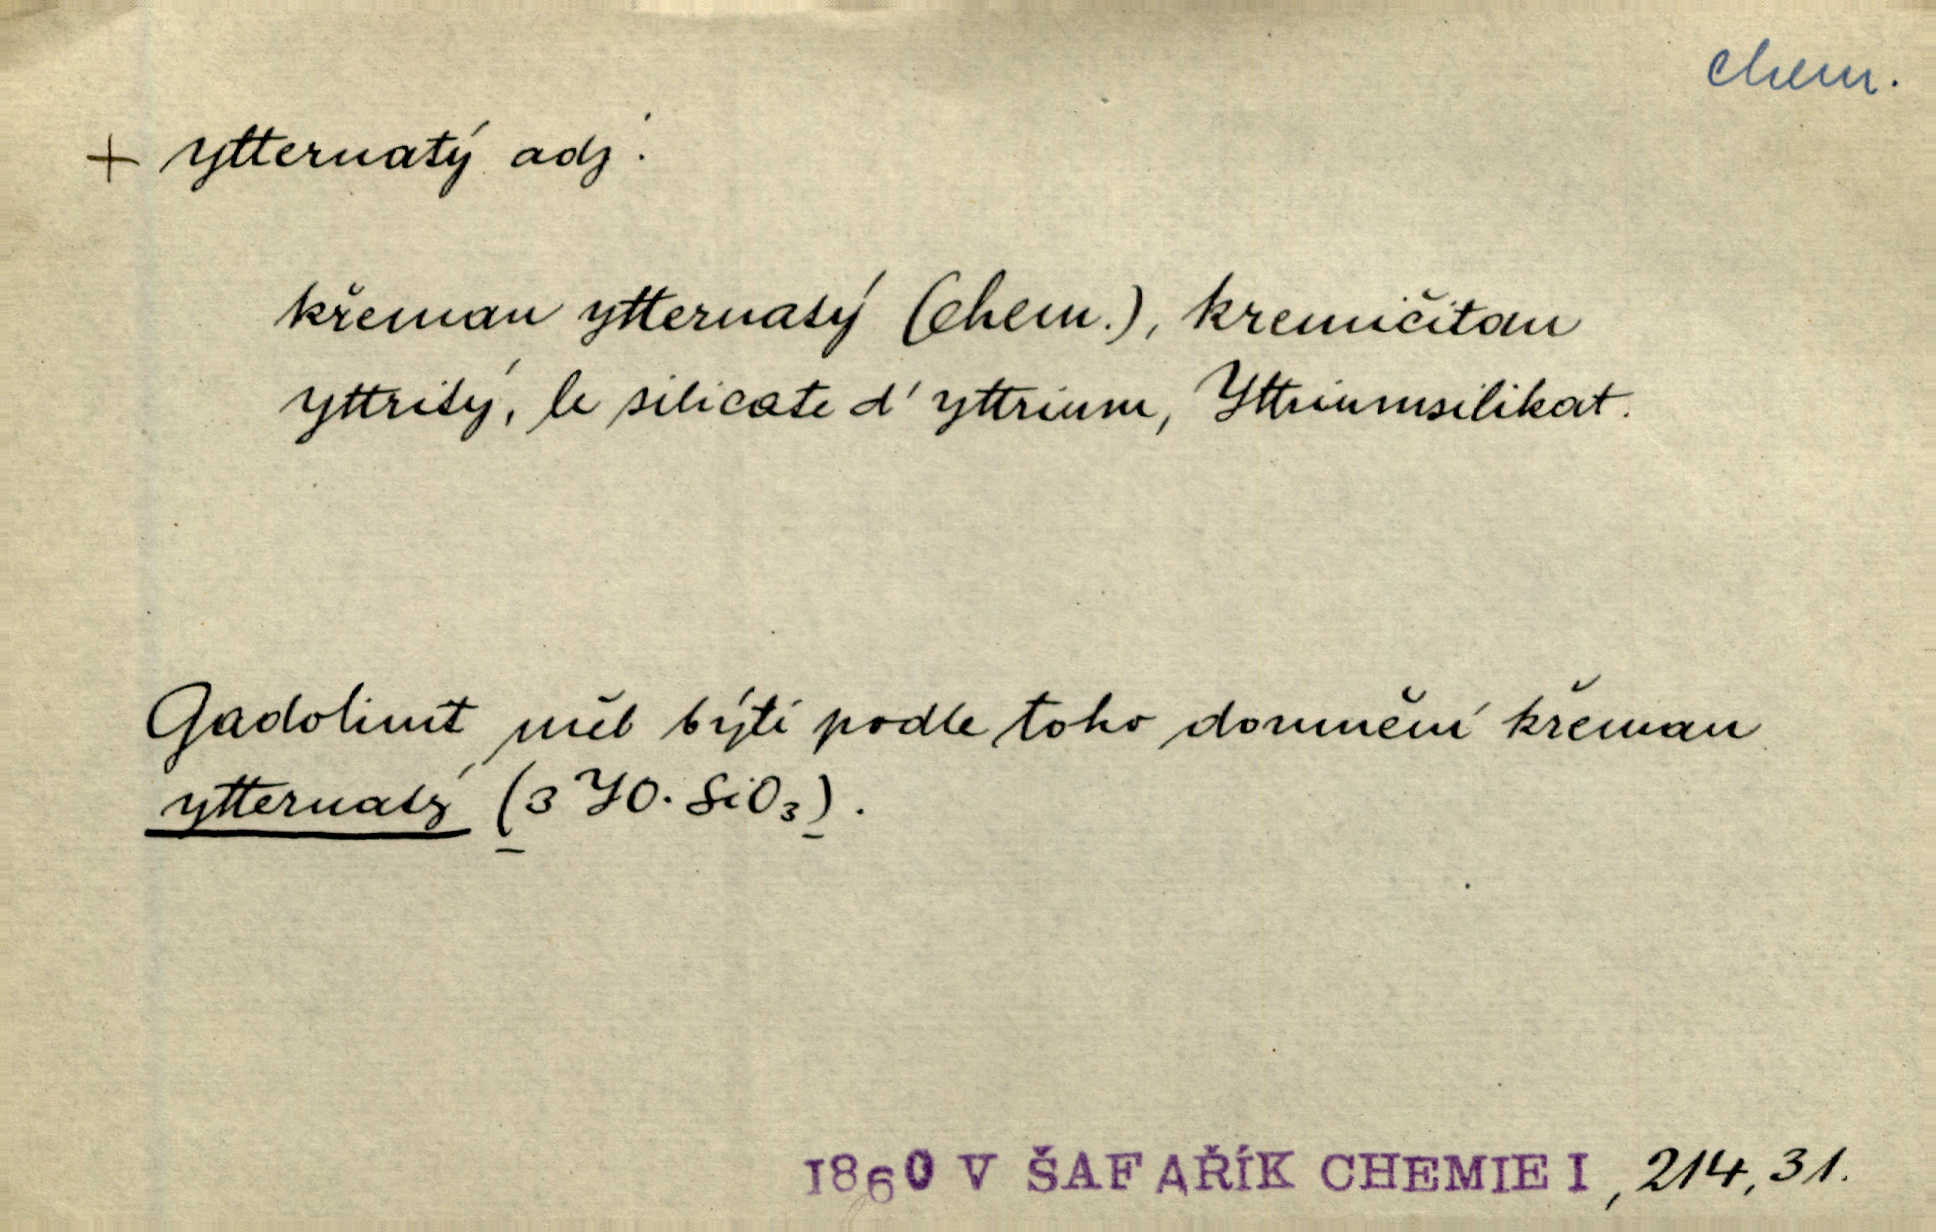 chem.
+ ytternatý adj.
křeman ytternatý (chem.), kremičitan
yttritý, le silicate d'yttrium, Yttriumsilikat.
Gadolinit měl býti podle toho domnění křeman
ytternatý (3 YO. SiO₃).
1860 V ŠAFAŘÍK CHEMIE I, 214, 31.